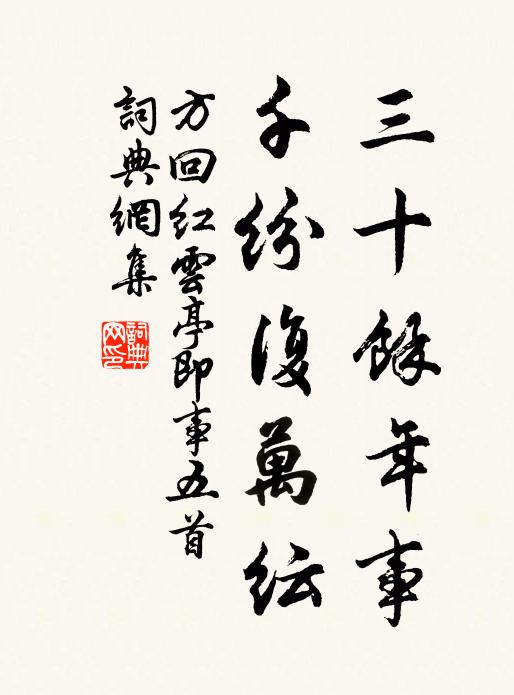 三十餘年事
千紛復萬紜
方回紅雲亭即事五首
詞典網集
詞典網印